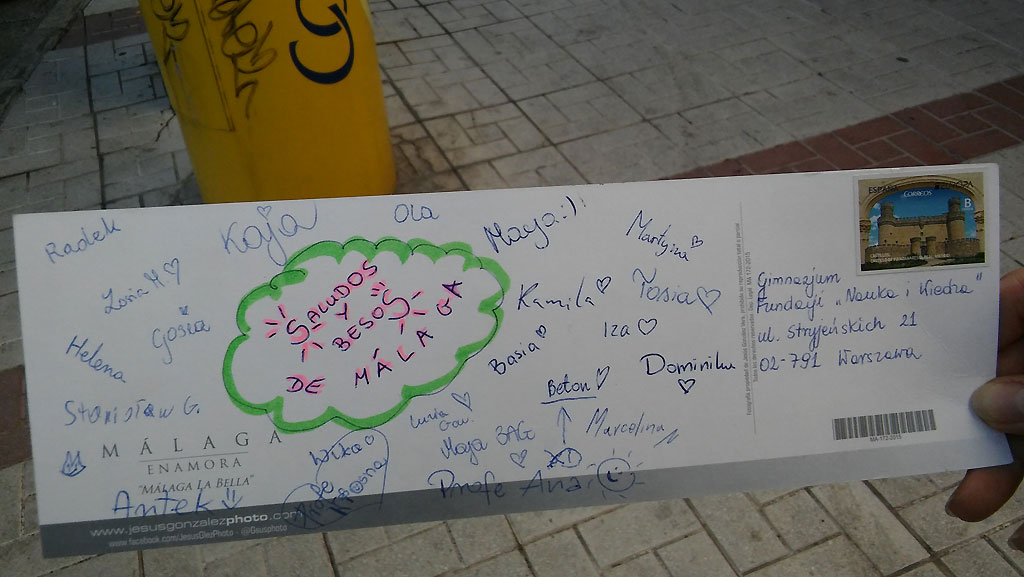 Radek
Kaja
Ola
Maya :)
Martyna
Zosia M
Gosia
Kamila
Tosia
Helena
Basia
Iza
Dominika
Stanisław G.
Beton
Maja BAG
Marcelina
Wika
Antek
Profe Ana
SALUDOS
Y
BESOS
DE MÁLAGA
MÁLAGA
ENAMORA
"MÁLAGA LA BELLA"
www.jesusgonzalezphoto.com
www.facebook.com/JesusGlezPhoto
ESPAÑA
CORREOS
B
Gimnazjum
Fundacji „Nauka i Wiedza"
ul. Stryjeńskich 21
02-791 Warszawa
MA-172-2015